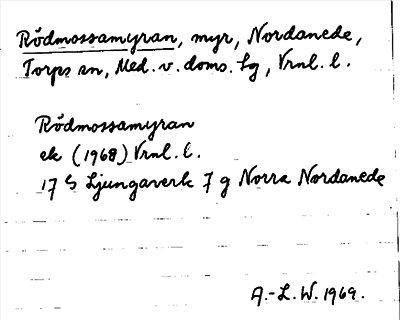 Rödmossamyran, myr, Nordanede,
Torps sn, Med. v. doms. Lg, Vrnl. l.
Rödmossamyran
ek (1968) Vrnl. l.
17 S Ljungaverk 7 g Norra Nordanede
A.-L. W. 1969.